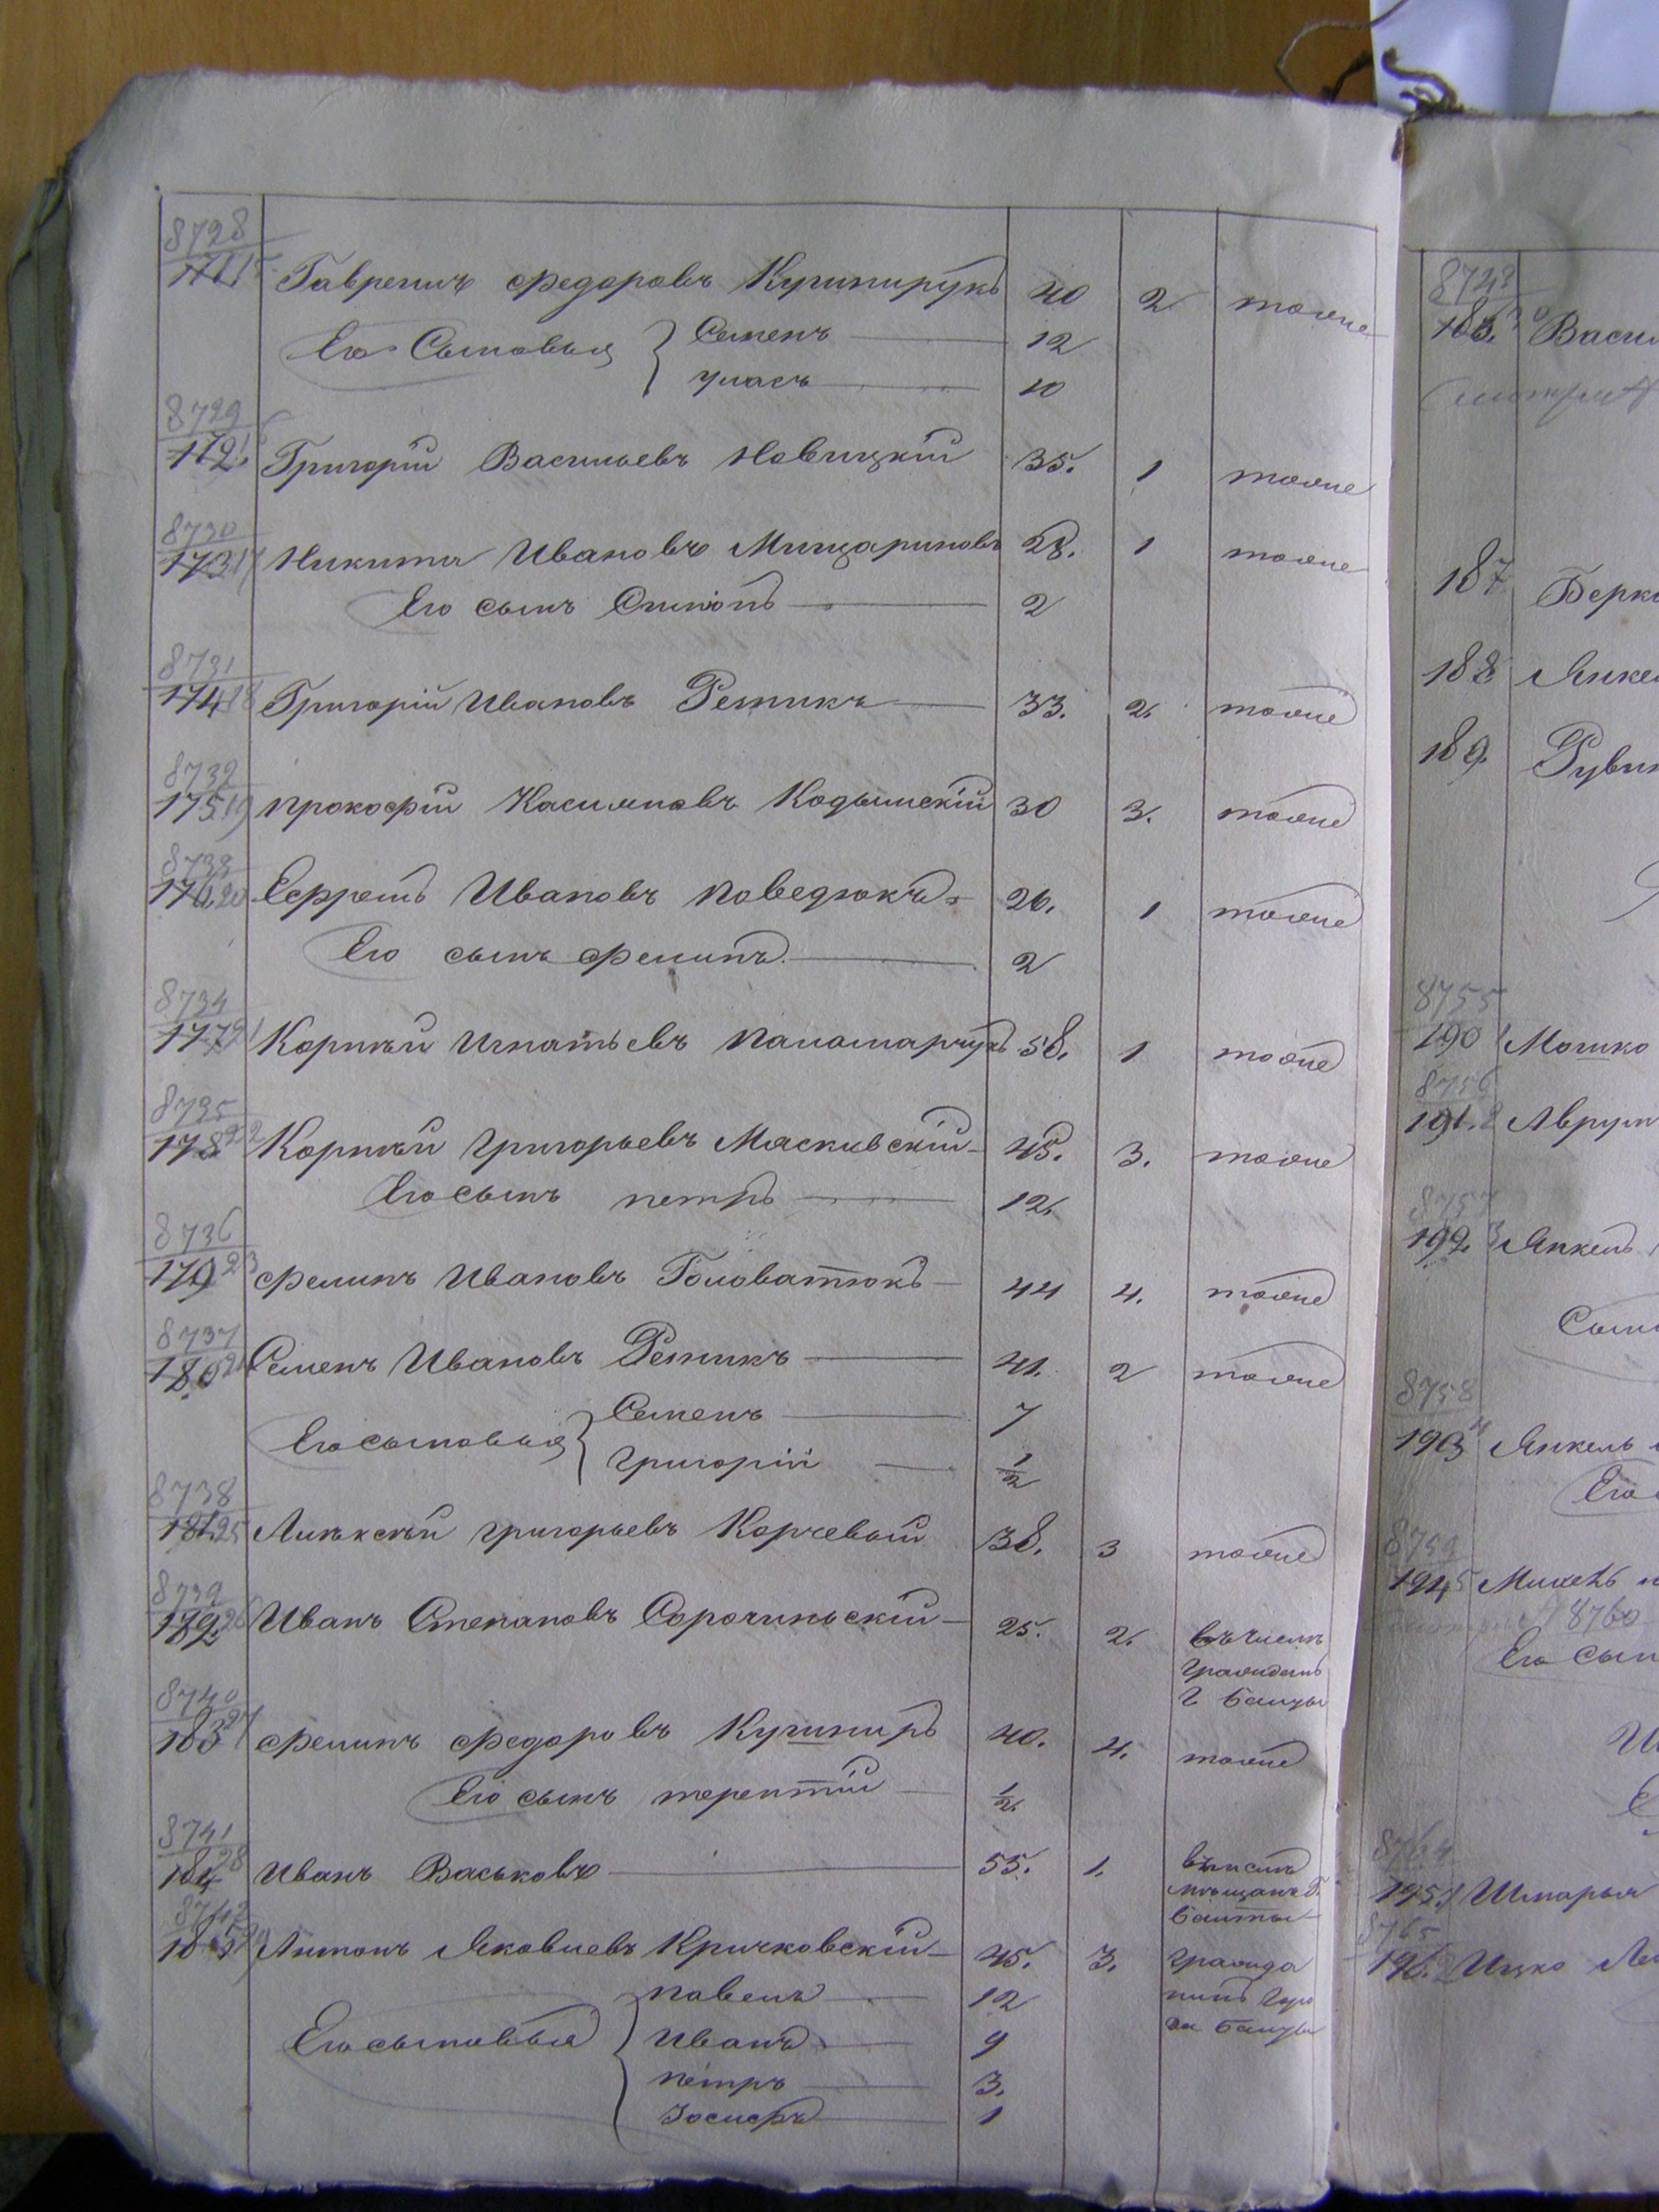 8728
171 15 Гаврилъ Федоровъ Кушнирукъ 40 2 тоже
Его Сыновья { Семенъ 12
Уласъ 10
8729
172. Григорій Васильевъ Новицкій 35. 1 тоже
8730
173 17 Никита Ивановъ Мищариновъ 28. 1 тоже
Его сынъ 2
8731
174 18 Григорій ИвановъРетикъ 33. 2. тоже
8732
175 19 Прокофій Касияновъ Кодымскій 30 3. тоже
8733
176 20 Ефремъ Ивановъ Поведюкъ 26. 1 тоже
Его сынъ Филипъ 2
8734
177 21 Корнѣй Игнатьевъ Паномарчукъ 58. 1 тоже
8735
178 22 Корнѣй Григорьевъ Мясковскій 45. 3. тоже
Его сынъ Петръ 12.
8736
179 23 Филипъ Ивановъ Головатюкъ 44 4. тоже
8737
180 24 Семенъ Ивановъ Ретикъ 41. 2 тоже
Его сыновья { Семенъ 7
Григорій 1/2
8738
181 25 Алѣксѣй Григорьевъ Корчевый 38. 3 тоже
8739
182. 26 Иванъ Степановъ Сорочинскій 25. 2. въ числѣ
гражданъ
г Балты
8740
183 27 Филипъ Федоровъ Кушниръ 40. 4. тоже
Его сынъ Терентій 1/2
8741
184 28 Иванъ Васьковъ 55. 1. въ числѣ
мѣщанъ Г.
Балты
8742
185 29 Антонъ Яковлевъ Кричковскій 45. 3. гражда
нинъ горо
да Балты
Его сыновья { Павелъ 12
Иванъ 9
Петръ 3.
Іосифъ 1
8743
186.
187
188
189.
8755
190 1 Мошко
8756
191. 2 Аврум
8757
192. 3 Янкель
Сыно
8758
193 4 Янкель
Его
8759
194 5
8760
Его сын
8764
195. 1 Шмарья
8765
196. 2 Ицко